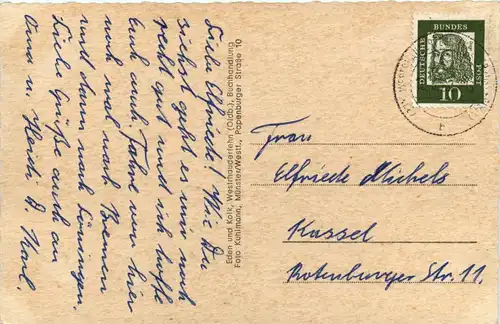 Liebe Elfriede! Wie Du
siehst geht es mir noch
recht gut und ich hoffe
Euch auch. Fahre von hier
noch mal nach Bremen
und dann nach Löningen.
Liebe Grüße auch an
Oma u. Heidi D. Karl.
Eden und Kolk, Westrhauderfehn (Oldb.), Buchhandlung
Foto Kuhlmann, Münster/Westf., Papenburger Straße 10
DEUTSCHE
BUNDES
POST
10
Frau
Elfriede Michels
Kassel
Rotenburger Str. 11.